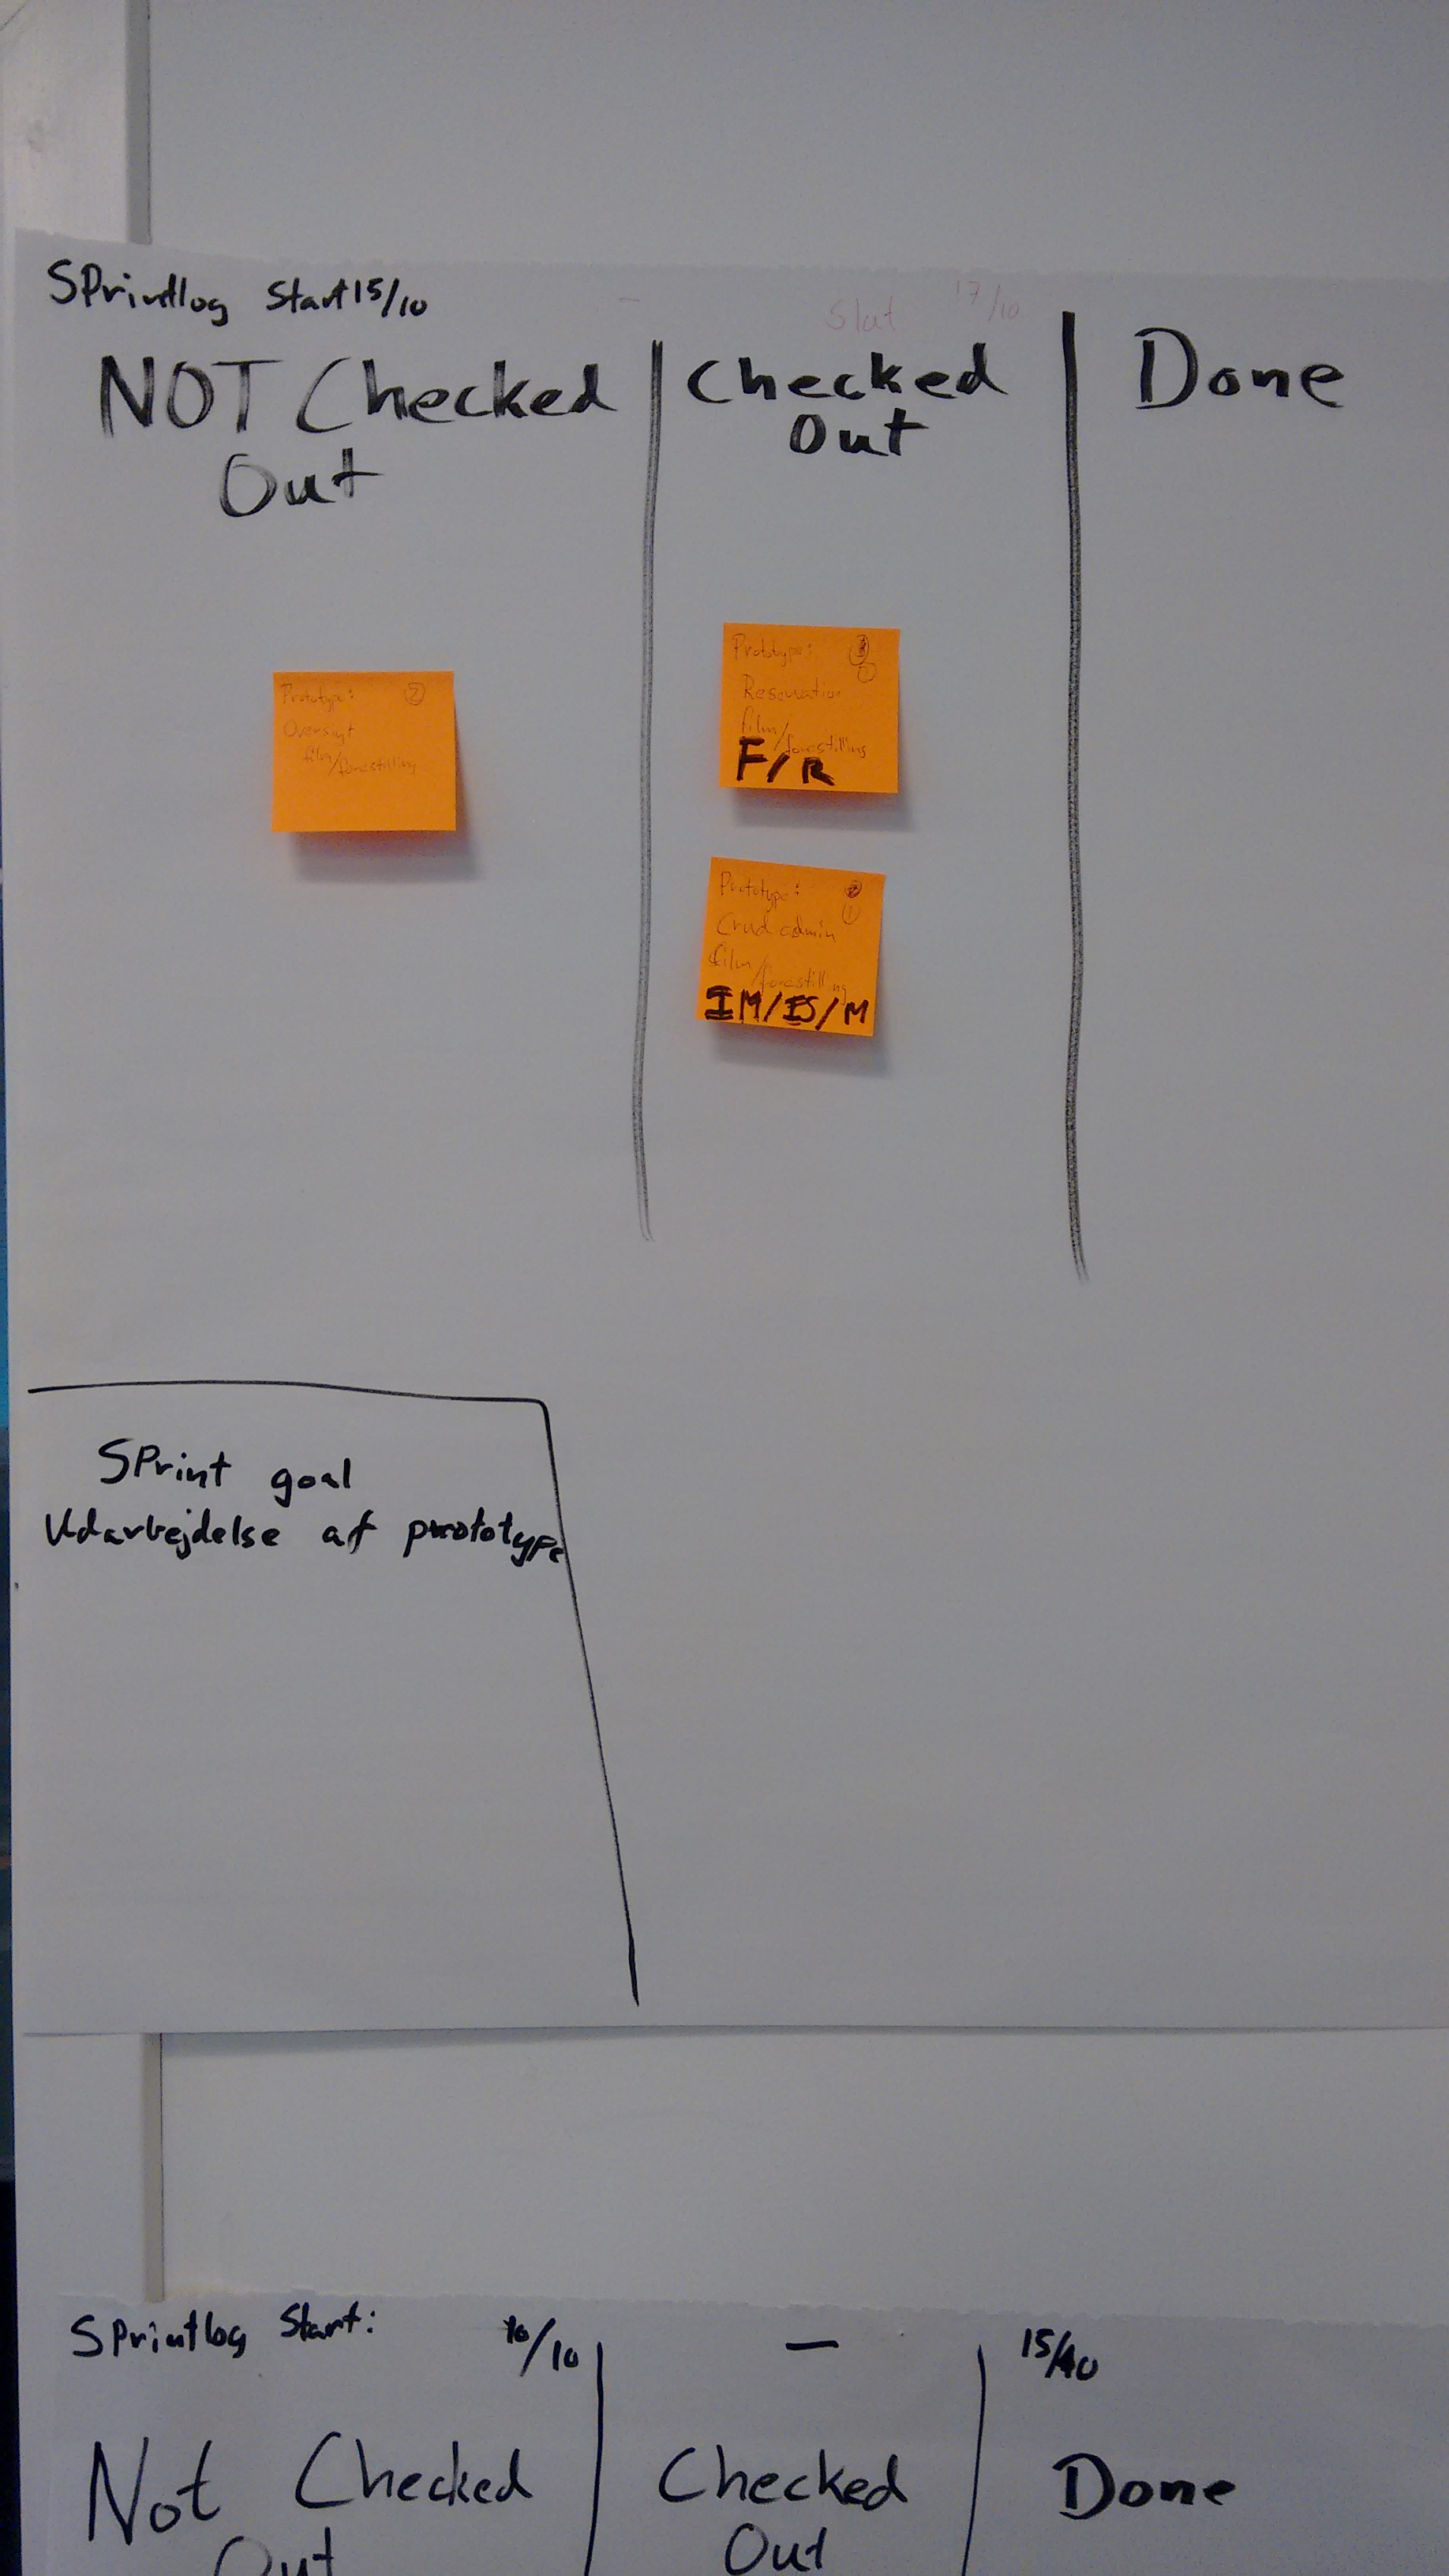 SPrintlog Start 15/10
Slut 17/10
NOT Checked
Out
Checked
Out
Done
Prototype: 2
Oversigt
film/forestilling
Prototype:
Reservation
film/forestilling
F/R
Prototype:
Crud admin
film/forestilling
IM/ES/M
SPrint goal
Udarbejdelse af prototype
SPrintlog Start: 10/10 — 15/10
Not Checked
Out
Checked
Out
Done